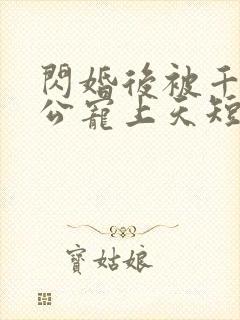 閃婚後被千
公寵上天短
寶姑娘